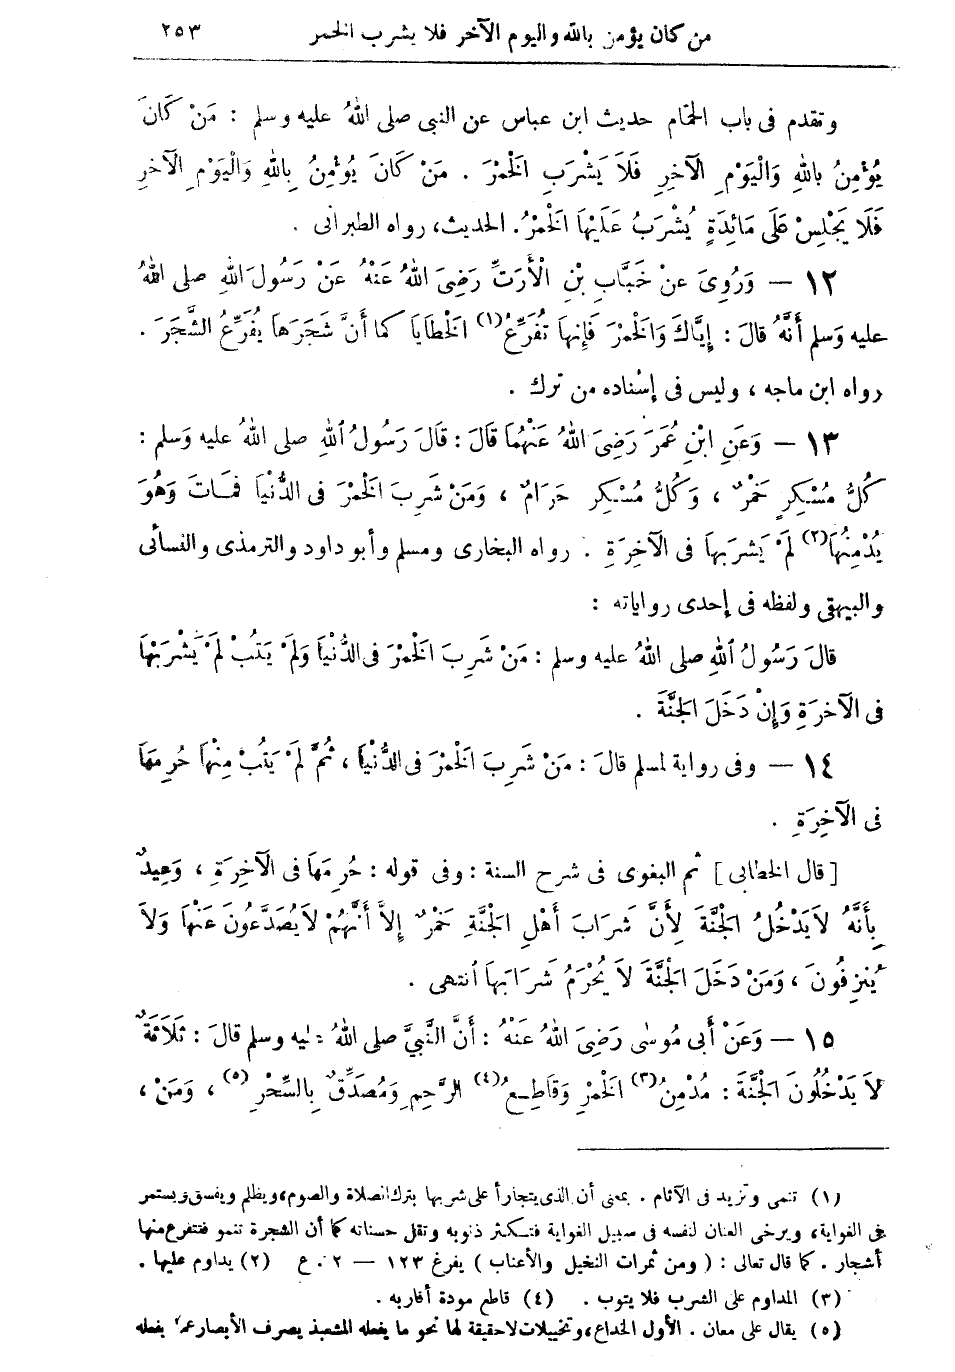 من كان يؤمن بالله واليوم الآخر فلا يشرب الخمر ٢٥٣
وتقدم فى باب الحمّام حديث ابن عباس عن النبى صلى اللهُ عليه وسلم : مَنْ كَانَ
يُؤْمِنُ باللهِ وَالْيَوْمِ الآخِرِ فَلاَ يَشْرَبِ الْخَمْرَ . مَنْ كَانَ يُؤْمِنُ بِاللهِ وَالْيَوْمِ الآخِرِ
فَلاَ يَجْلِسْ عَلَى مَائِدَةٍ يُشْرَبُ عَلَيْهَا الْخَمْرُ . الحديث، رواه الطبرانى .
١٢ — وَرُوِىَ عنْ خَبَّابِ بْنِ الْأَرَتِّ رَضِىَ اللهُ عَنْهُ عَنْ رَسُولَ اللهِ صلى اللهُ
عليه وَسلم أَنَّهُ قالَ : إِيَّاكَ وَالْخَمْرَ فَإِنهَا تُفَرِّعُ(١) الْخَطَايَا كَمَا أَنَّ شَجَرَهَا يُفَرِّعُ الشَّجَرَ .
رواه ابن ماجه ، وليس فى إسْناده من ترك .
١٣ — وَعَنِ ابْنِ عُمَرَ رَضِىَ اللهُ عَنْهُمَا قَالَ : قَالَ رَسُولُ اللهِ صلى اللهُ عليه وَسلم :
كُلُّ مُسْكِرٍ خَمْرٌ ، وَكُلُّ مُسْكِرٍ حَرَامٌ ، وَمَنْ شَرِبَ الْخَمْرَ فى الدُّنْيَا فَمَاتَ وَهُوَ
يُدْمِنُهَا(٢) لَمْ يَشْرَبهَا فى الآخِرَةِ . رواه البخارى ومسلم وأبو داود والترمذى والنسائى
والبيهقى ولفظه فى إحدى رواياته :
قالَ رَسُولُ اللهِ صلى اللهُ عليه وسلم : مَنْ شَرِبَ الْخَمْرَ فى الدُّنْيَا وَلَمْ يَتُبْ لَمْ يَشْرَبْهَا
فى الآخرَةِ وَإِنْ دَخَلَ الْجَنَّةَ .
١٤ — وفى رواية لمسلم قالَ : مَنْ شَرِبَ الْخَمْرَ فى الدُّنْيَا ، ثُمَّ لَمْ يَتُبْ مِنْهَا حُرِمَهَا
فى الآخِرَةِ .
[ قال الخطابى ] ثم البغوى فى شرح السنة : وفى قوله : حُرِمَهَا فى الآخِرَةِ ، وَعِيدٌ
بِأَنَّهُ لاَيَدْخُلُ الْجَنَّةَ لِأَنَّ شَرَابَ أَهْلِ الْجَنَّةِ خَمْرٌ إِلاَّ أَنَّهُمْ لاَيُصَدَّعُونَ عَنْهَا وَلاَ
يُنْزِفُونَ ، وَمَنْ دَخَلَ الْجَنَّةَ لاَ يُحْرَمُ شَرَابَهَا انتهى .
١٥ — وَعَنْ أَبى مُوسٰى رَضِىَ اللهُ عَنْهُ : أَنَّ النَّبِيَّ صلى اللهُ عليه وسلم قالَ : ثَلَاثَةٌ
لاَ يَدْخُلُونَ الْجَنَّةَ : مُدْمِنُ(٣) الْخَمْرِ وَقَاطِعُ(٤) الرَّحِمِ وَمُصَدِّقٌ بِالسِّحْرِ(٥) ، وَمَنْ ،
(١) تنمى وتزيد فى الآثام . بمعنى أن الذى يتجارأ على شربها بترك الصلاة والصوم، ويظلم ويفسق ويستمر
فى الغواية، ويرخى العنان لنفسه فى سبيل الغواية فتكثر ذنوبه وتقل حسناته كما أن الشجرة تنمو فتتفرع منها
أشجار . كما قال تعالى : ( ومن ثمرات النخيل والأعناب ) يفرغ ١٢٣ — ٢ . ع (٢) يداوم عليها .
(٣) المداوم على الشرب فلا يتوب . (٤) قاطع مودة أقاربه .
(٥) يقال على معان . الأول الخداع، وتخييلات لاحقيقة لها نحو ما يفعله المشعبذ بصرف الأبصار عما يفعله